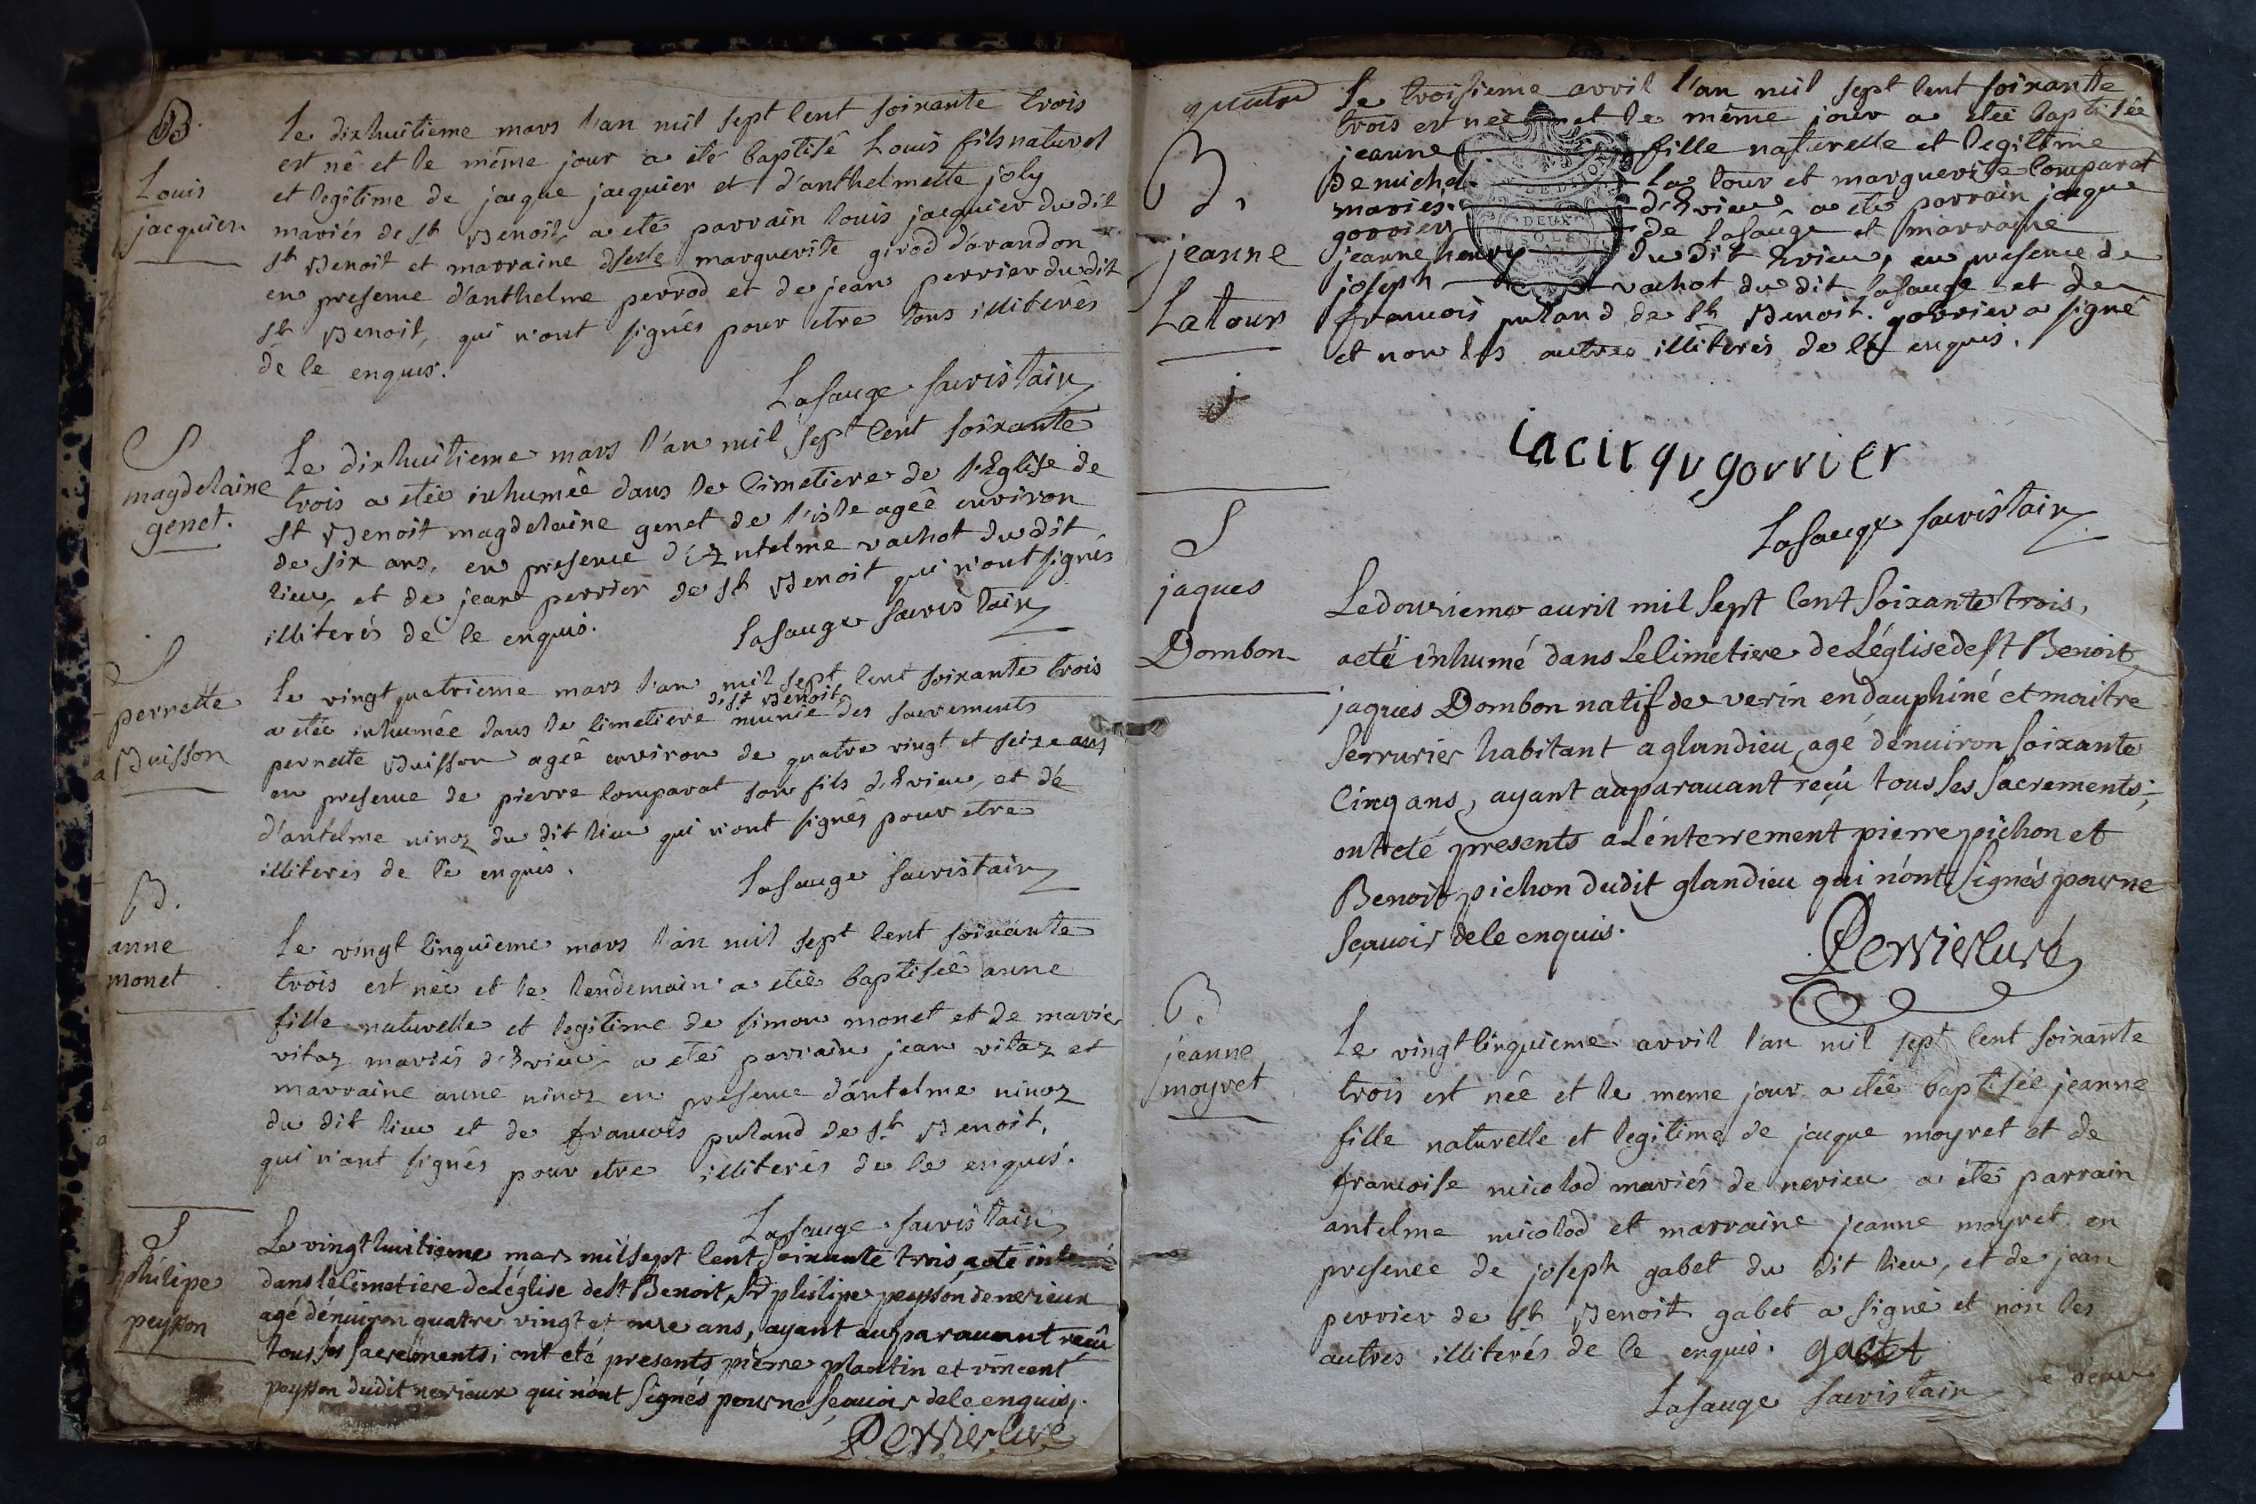 B.
Louis
jacquier
Le dixhuitieme mars l'an mil sept cent soixante trois
est né et le même jour a été baptisé Louis fils naturel
et legitime de jacque jacquier et d'anthelmette joly
mariés de st Benoit, a été parrain louis jacquier du dit
st Benoit et marraine marguerite girod d'arandon
en presence d'anthelme perrod et de jean perrier du dit
st Benoit, qui n'ont signés pour etre tous illiterés
de ce enquis.
Lasauge sacristain
S
magdelaine
genet.
Le dixhuitieme mars l'an mil sept cent soixante
trois a etée inhumée dans le cimetiere de l'Eglise de
st Benoit magdelaine genet de l'isle agée environ
de six ans, en presence d'Antelme vachot du dit
lieu, et de jean perrier de st Benoit qui n'ont signés
illiterés de ce enquis.
Lasauge sacristain
S
pernette
Buisson
Le vingt quatrieme mars l'an mil sept cent soixante trois
de st Benoit
a etée inhumée dans le cimetiere munie des sacrements
pernette Buisson agée environ de quatre vingt et seize ans
en presence de pierre comparat son fils d'Evieu, et de
d'antelme ninoz du dit lieu qui n'ont signés pour etre
illiterés de ce enquis.
Lasauge sacristain
B.
anne
monet
Le vingt cinquieme mars l'an mil sept cent soixante
trois est née et le lendemain a etée baptisée anne
fille naturelle et legitime de simon monet et de marie
vitaz mariés d'Evieu, a eté parrain jean vitaz et
marraine anne ninoz en presence d'antelme ninoz
du dit lieu et de francois puland de st Benoit,
qui n'ont signés pour etre illiterés de ce enquis.
Lasauge sacristain
S
philipe
peysson
Le vingt huitieme mars mil sept cent soixante trois a eté inhumé
dans le cimetiere de L'église de st Benoit, Sr philipe peysson de nerieux
agé d'enuiron quatre vingt et onze ans, ayant auparauant reçu
tous ses sacrements; ont eté presents pierre plantin et vincent
peysson dudit nerieux qui n'ont signés pour ne sçauoir de ce enquis.
Perrier curé
B.
jeanne
Latour
Le troisieme avril l'an mil sept cent soixante
trois est née et le même jour a etée baptisée
jeanne fille naturelle et legitime
de michel la tour et marguerite comparat
mariés d'Evieu a eté parrain jaque
gorrier de lasauge et marraine
jeanne henry du dit Evieu, en presence de
joseph vachot du dit lasauge et de
francois puland de st Benoit. gorrier a signé
et non les autres illiterés de ce enquis.
DEUX
SOLS
iacir qu gorrier
Lasauge sacristain
S
jaques
Dombon
Le douzieme auril mil sept cent soixante trois,
a eté inhumé dans le cimetiere de L'église de st Benoit
jaques Dombon natif de verin en dauphiné et maitre
serrurier habitant a glandieu, agé d'enuiron soixante
cinq ans, ayant auparauant reçu tous ses sacrements;
ont eté presents a L'enterrement pierre pichon et
Benoit pichon dudit glandieu qui n'ont signés pour ne
sçauoir de ce enquis.
Perrier curé
B.
jeanne
moyret
Le vingt cinquieme avril l'an mil sept cent soixante
trois est née et le meme jour a etée baptisée jeanne
fille naturelle et legitime de jacque moyret et de
francoise micolod mariés de nerieu a été parrain
antelme micolod et marraine jeanne moyret en
presence de joseph gabet du dit lieu, et de jean
perrier de st Benoit gabet a signé et non les
autres illiterés de ce enquis. gabet
Lasauge sacristain